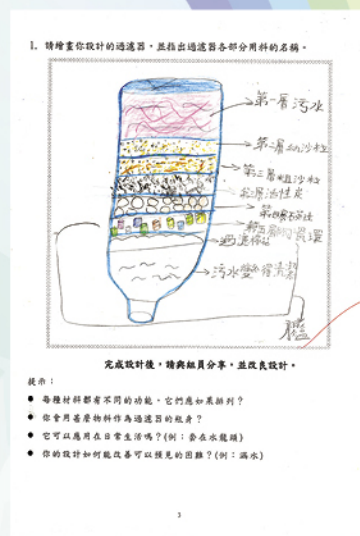 1. 請繪畫你設計的過濾器，並指出過濾器各部分用料的名稱。
第一層污水
第二層幼沙粒
第三層粗沙粒
活性炭
第五層
完成設計後，請與組員分享，並改良設計。
提示：
● 每種材料都有不同的功能，它們應如果排列？
● 你會用甚麼物料作為過濾器的瓶身？
● 它可以應用在日常生活嗎？(例：套在水龍頭)
● 你的設計如何能改善可以預見的困難？(例：漏水)
3